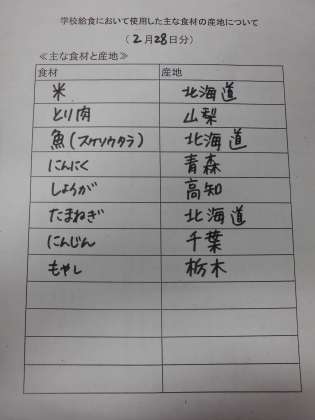 学校給食において使用した主な食材の産地について
（2月28日分）
≪主な食材と産地≫
食材 産地
米 北海道
とり肉 山梨
魚(スケソウタラ) 北海道
にんにく 青森
しょうが 高知
たまねぎ 北海道
にんじん 千葉
もやし 栃木